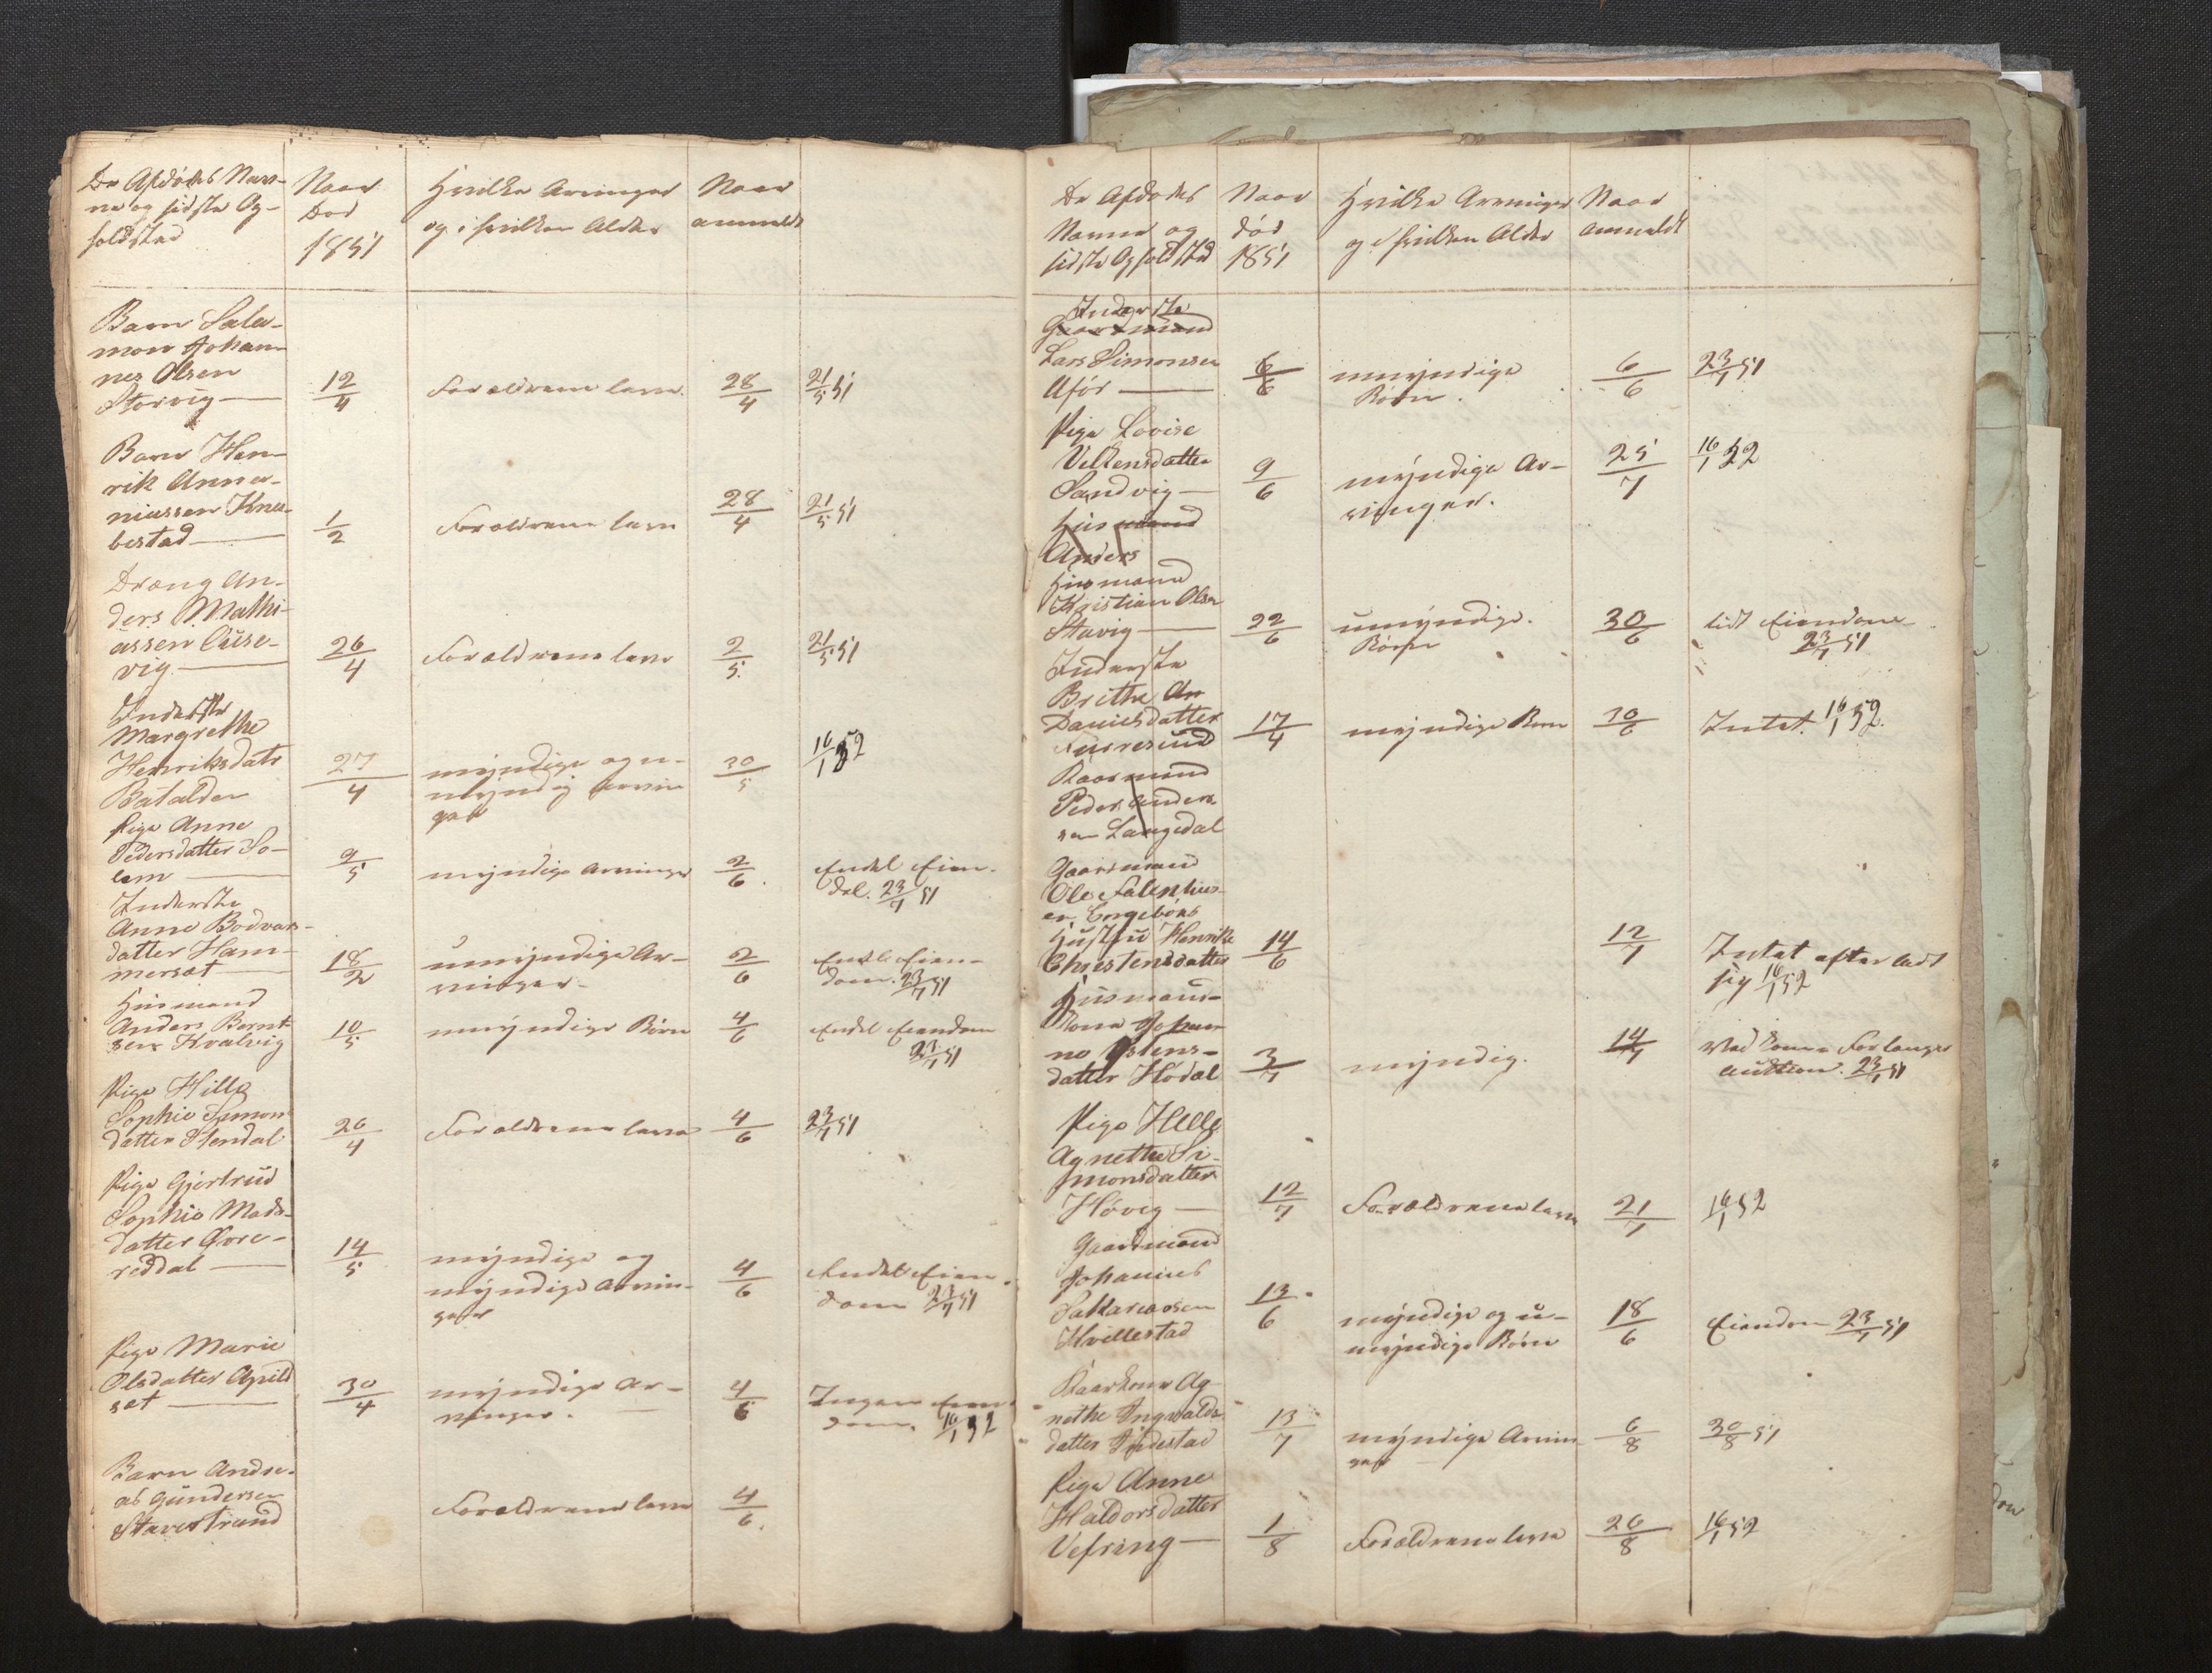 De Afdødes Nav-
ne og sidste Op-
holdsted
Naar
Død
1851
Hvilke Arvinger
og i hvilken Alder
Naar
anmeldt
Barn Salo-
mon Johan-
nes Olsen
Storvig — 12/4 Forældrene leve. 28/4 21/5 51
Barn Hen-
rik Anna-
niassen Kna-
bestad — 1/2 Forældrene leve 28/4 21/5 51
Dræng An-
ders Mathi-
assen Ause-
vig — 26/4 Forældrene leve 2/5. 21/5 51
Inderste
Margrethe
Henriksdatr
Batalden 27/4 myndige og u-
myndig Arvin
ger 30/5 16/1 52
Pige Anne
Pedersdatter So-
lem — 9/5 myndige Arvinger 2/6. Endel Eien-
del. 23/7 51
Inderste
Anne Bodvars-
datter Ham-
merset — 18/2 umyndige Ar-
vinger — 2/6 Endel Eien-
dom. 23/7 51
Husmand
Anders Bernt-
sen Kvalvig 10/5 myndige Børn 4/6 Endel Eiendom
23/7 51
Pige Hille
Sophie Simons
datter Stendal 26/4 Forældrene leve 4/6 23/7 51
Pige Gjertrud
Sophie Mads-
datter Øvre-
reddal — 14/5 myndige og
myndige Arvin-
ger 4/6 Endel Eien
dom 23/7 51
Pige Marie
Olsdatter Apild
set — 30/4 myndige Ar-
vinger. — 4/6 Ingen Eien
dom. 16/1 52
Barn Andre-
as Gundersen
Stavestrand Forældrene leve 4/6.
De Afdødes
Navne og
sidste Opholdsted
Naar
død
1851
Hvilke Arvinger
og i hvilken Alder
Naar
anmeldt
Inderste
Gaardmand
Lars Simonsen
Afør — 6/6 umyndige
Børn. 6/6 23/7 51
Pige Lovise
Veltensdatter
Sandvig — 9/6 myndige Ar-
vinger. 25/7 16/1 52
Husmand
Anders
Husmand
Kristian Olsen
Stavig — 22/6 umyndige.
Børn 30/6 lidt Eiendom
23/7 51
Inderste
Brithe An
Danielsdatter
Furresund 17/4 myndige Børn 30/6 Intet. 16/1 52.
Kaarmand
Peder Anders
sen Langedal
Gaardmand
Ole
Engebøns
Hustru Henrikke
Christensdatter 14/6 12/7 Intet efterladt
sig 16/1 52
Husmands-
Kone Johan
ne Østens-
datter Hødal 3/7 myndig. 14/7 Ved Kom- Forlanger
Auction. 23/7 51
Pige Helle
Agnethe Si-
monsdatter
Høvig — 12/7 Forældrene leve 21/7 16/1 52
Gaardmand
Johannes
Sakariassen
Hvillestad 13/6 myndige og u-
myndige Børn 18/6 Eiendom 23/7 51
Kaarkone Ag-
nethe Ingvalds-
datter Indestad 13/7 myndige Arvin
ger 6/8 30/8 51
Pige Anne
Haldorsdatter
Vefring — 1/8 Forældrene leve 26/8 16/1 52